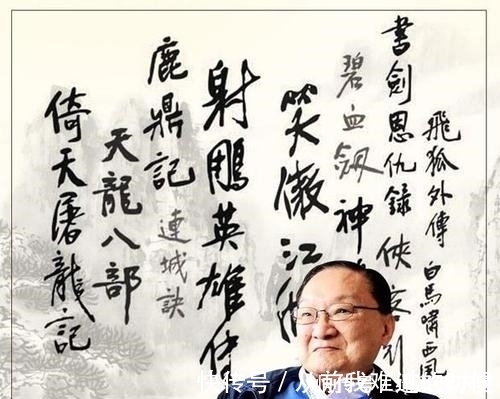 飛狐外傳
白馬嘯西風
書劍恩仇錄
俠客行
碧血劍
神
笑傲江湖
射鵰英雄傳
鹿鼎記
連城訣
天龍八部
倚天屠龍記
快传号 / 从前我难